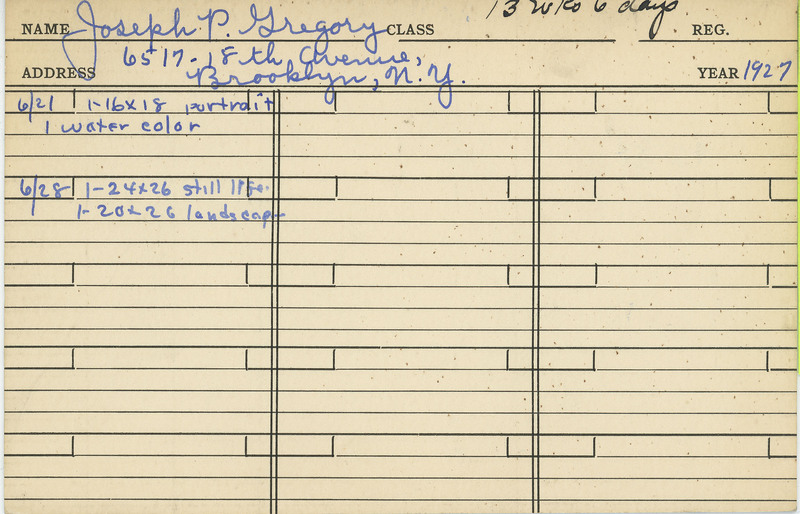 13 wks 6 days
NAME Joseph P. Gregory CLASS REG.
6517-18th Avenue,
ADDRESS Brooklyn, N.Y. YEAR 1927
6/21 1-16x18 portrait
1 water color
6/28 1-24x26 still life.
1-20x26 landscape